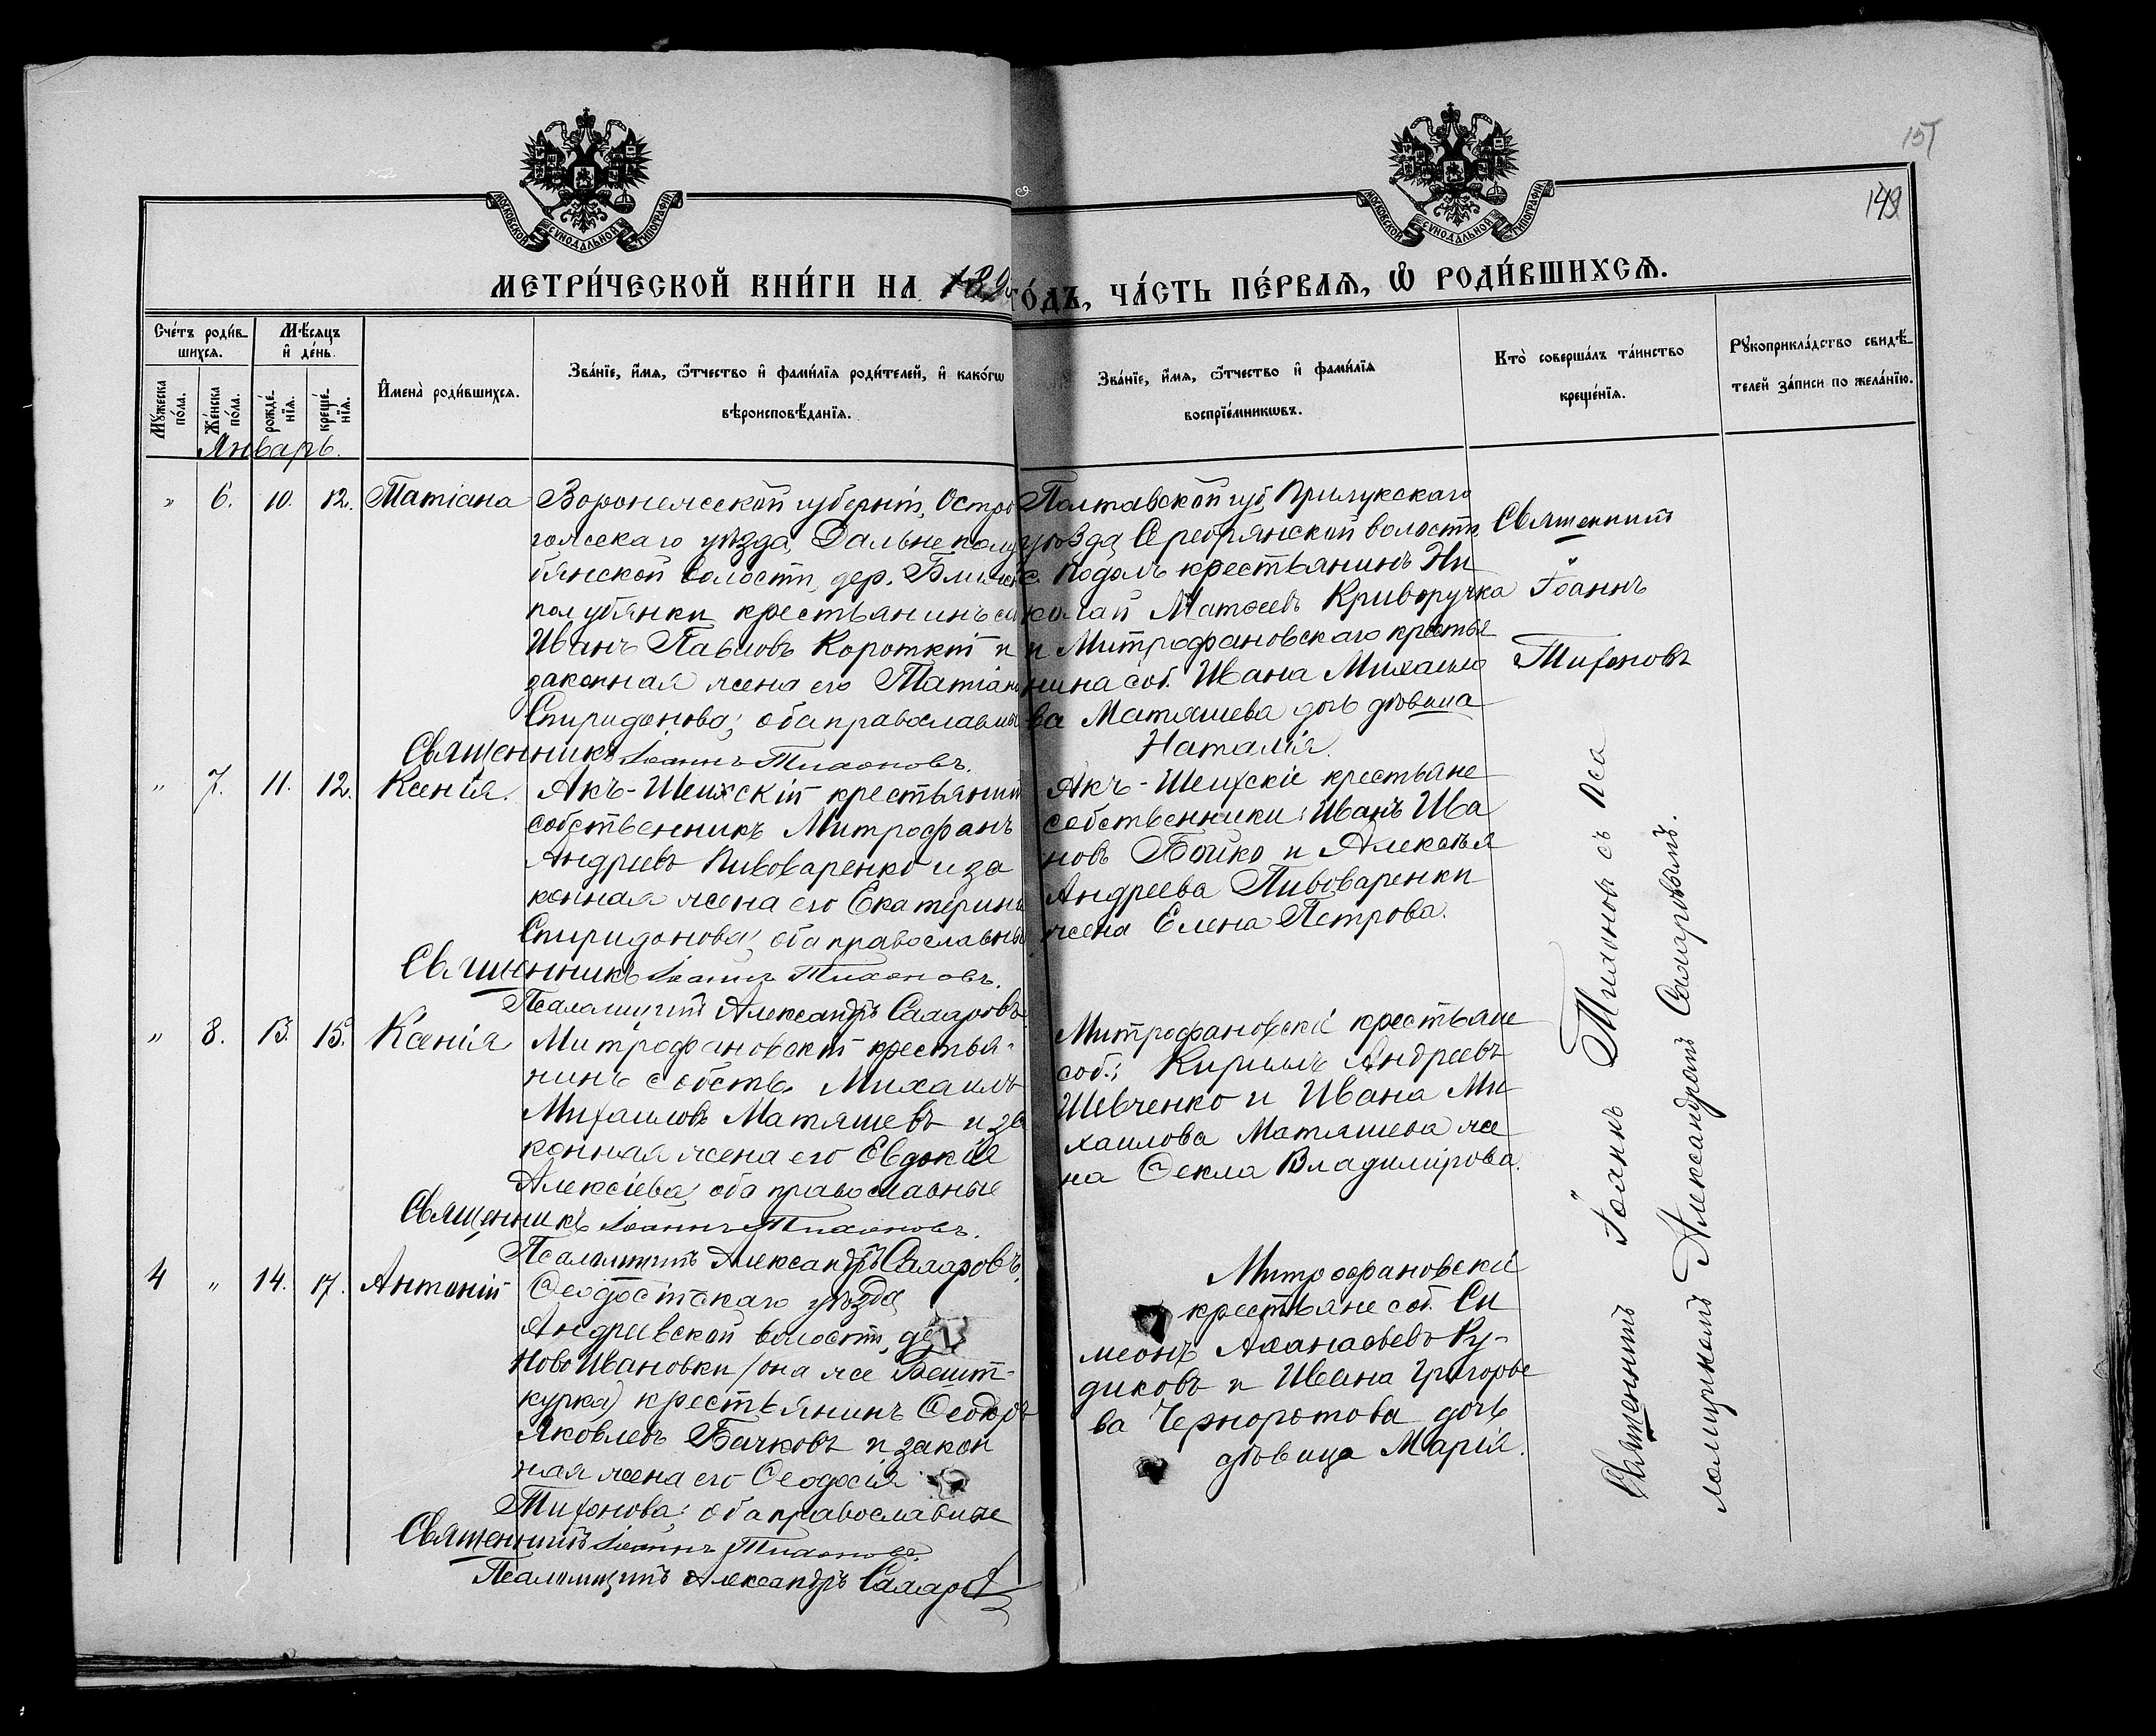 151
149
МОСКОВСКОЙ СѴНОДАЛЬНОЙ ТИПОГРАФІИ
МОСКОВСКОЙ СѴНОДАЛЬНОЙ ТИПОГРАФІИ
МЕТРИ́ЧЕСКОЙ КНИ́ГИ НА 189 ГО́ДЪ, ЧА́СТЬ ПЕ́РВАѦ, Ѽ РОДИ́ВШИХСѦ.
Сче́тъ роди́в-
шихсѧ.
Мѣ́сѧцъ
и҆ де́нь.
Мꙋ́жеска по́ла.
Же́нска по́ла.
рожде́-
нїѧ.
креще́-
нїѧ.
И҆мена̀ роди́вшихсѧ.
Зва́нїе, и҆́мѧ, ѻ҆́тчество и҆ фами́лїѧ роди́телей, и҆ како́гѡ
вѣроисповѣ́данїѧ.
Зва́нїе, и҆́мѧ, ѻ҆́тчество и҆ фами́лїѧ
воспрїе́мникѡвъ.
Кто̀ соверша́лъ та́инство
креще́нїѧ.
Рꙋкоприкла́дство свидѣ́-
телей за́писи по жела́нїю.
Январь.
" 6. 10. 12. Татіана
Воронежской губерніи, Остро
гожскаго уѣзда, Дальнеполу
бянской волости, дер. Ближн
полубянки крестьянинъ со
Иванъ Павловъ Короткій и
законная жена его Татіана
Спиридонова; оба православные
Священникъ Іоаннъ Тихоновъ.
Полтавской губ, Прилукскаго
уѣзда, Серебрянской волости,
с. Подолъ крестьянинъ Ни
колай Матѳеевъ Криворучка
и Митрофановскаго крестья
нина соб. Ивана Михаило
ва Матяшева дочь дѣвица
Наталія.
Священникъ
Іоаннъ
Тихоновъ
" 7. 11. 12. Ксенія.
Акъ-Шеихскій крестьянинъ
собственникъ Митрофанъ
Андреевъ Пивоваренко и за
конная жена его Екатерина
Спиридонова; оба православные
Священникъ Іоаннъ Тихоновъ.
Псаломщикъ Александръ Сахаровъ
Акъ-Шеихскіе крестьяне
собственники: Иванъ Ива
новъ Бойко и Алексѣя
Андреева Пивоваренки
жена Елена Петрова.
" 8. 13. 15. Ксенія
Митрофановскій крестья-
нинъ собств. Михаилъ
Михаиловъ Матяшевъ и за
конная жена его Евдокія
Алексіева; оба православные
Священникъ Іоаннъ Тихоновъ.
Псаломщикъ Александръ Сахаровъ.
Митрофановскіе крестьяне
соб.; Кириллъ Андреевъ
Шевченко и Ивана Ми-
хаилова Матяшева же
на Ѳекла Владимірова.
4 " 14. 17. Антоній
Ѳеодосійскаго уѣзда
Андреевской волости, де
Ново Ивановки (она же Бешт-
курка) крестьянинъ Ѳеодоръ
Яковлевъ Бачковъ и закон
ная жена его Ѳеодосія
Тихонова; оба православные
Священникъ Іоаннъ Тихоновъ.
Псаломщикъ Александръ Сахаровъ
Митрофановскіе
крестьяне соб. Си
меонъ Аѳанасьевъ Ру-
диковъ и Ивана Григорье
ва Черноротова дочь
дѣвица Марія.
Священникъ Іоаннъ Тихоновъ съ Пса
ломщикомъ Александромъ Сахаровымъ.